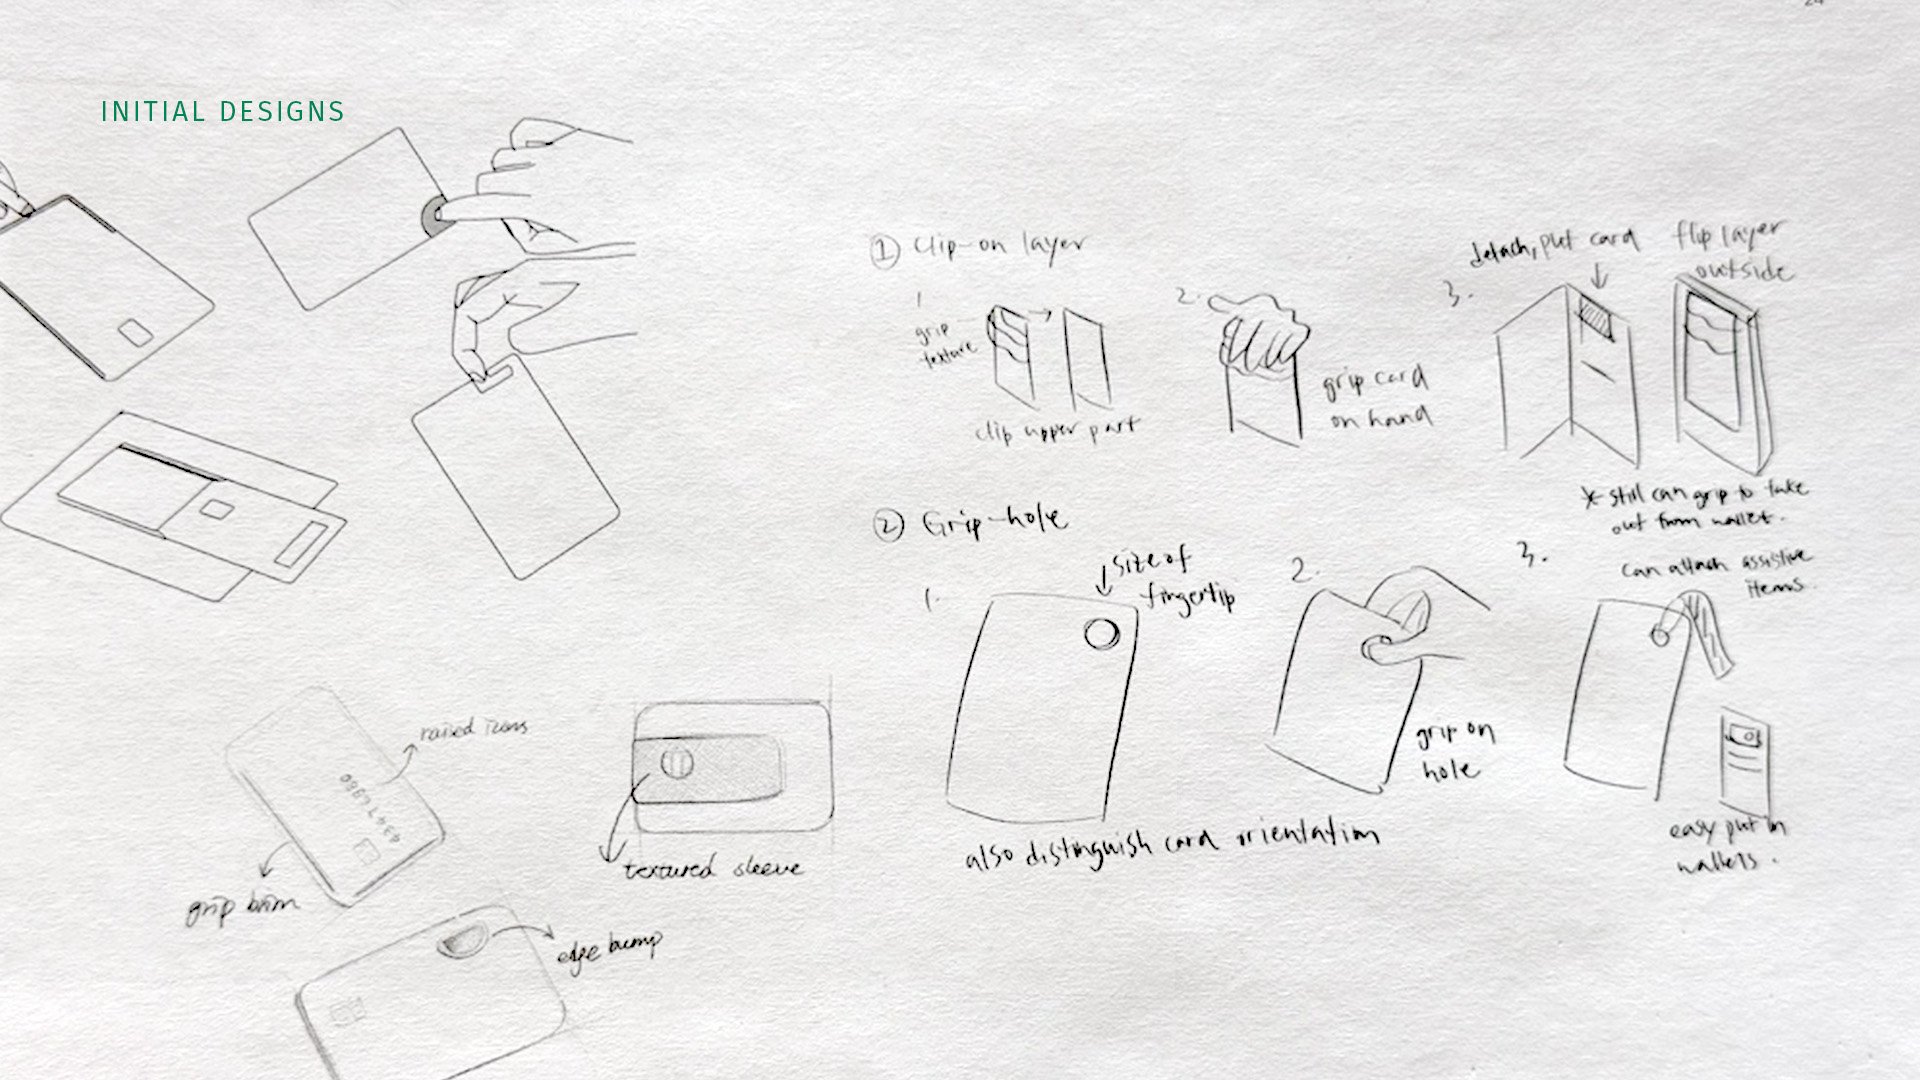 24
INITIAL DESIGNS
① Clip-on layer
1
grip
texture
clip upper part
2.
grip card
on hand
3.
detach, put card
flip layer
outside
* still can grip to take
out from wallet.
② Grip-hole
1.
size of
fingertip
2.
grip on
hole
3.
can attach assistive
items.
easy put in
wallets.
also distinguish card orientation
raised icons
4347 6980
grip brim
textured sleeve
edge bump